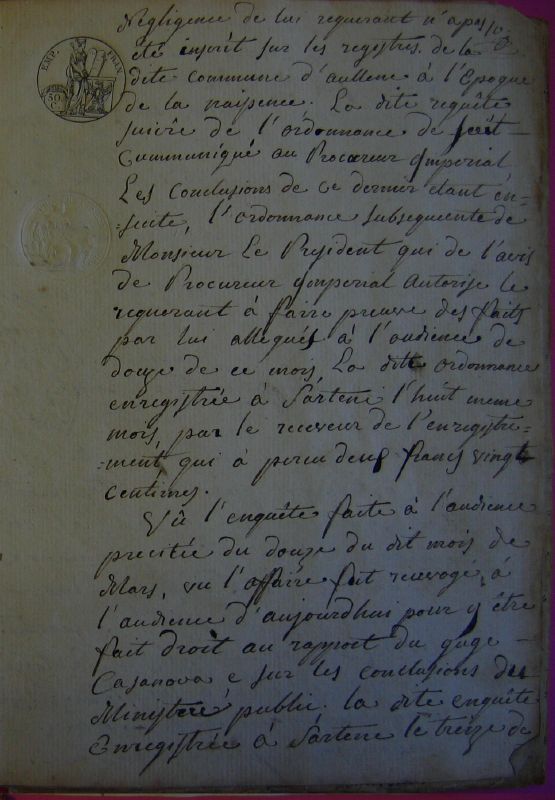 Negligence de lui requerant n'a pas
été inscrit sur les registres de la
dite Commune d'aullene à l'Epoque
de la naissence. La dite requête
suivie de l'ordonnance de soit
Communiqué au Procureur Imperial
Les Conclusions de ce dernier etant en=
=suite, l'ordonnance subsequente de
Monsieur Le President qui de l'avis
de Procureur Imperial Autorise le
requerant à faire preuve des faits
par lui allegués à l'audience de
douze de ce mois La dite ordonnance
enregistrée à Sartene l'huit meme
mois, par le receveur de l'enregistre=
=ment qui à percu deux francs vingt
Centimes.
Vû l'enquête faite à l'audience
precitée du douze du dit mois de
Mars, vu l'affaire fut renvoyé à
l'audience d'aujourdhui pour y être
fait droit au rapport du juge
Casanova e sur les conclusions du
Ministere public. la dite enquête
Enregistrée à Sartene le treize de
EMP. FRAN.
50